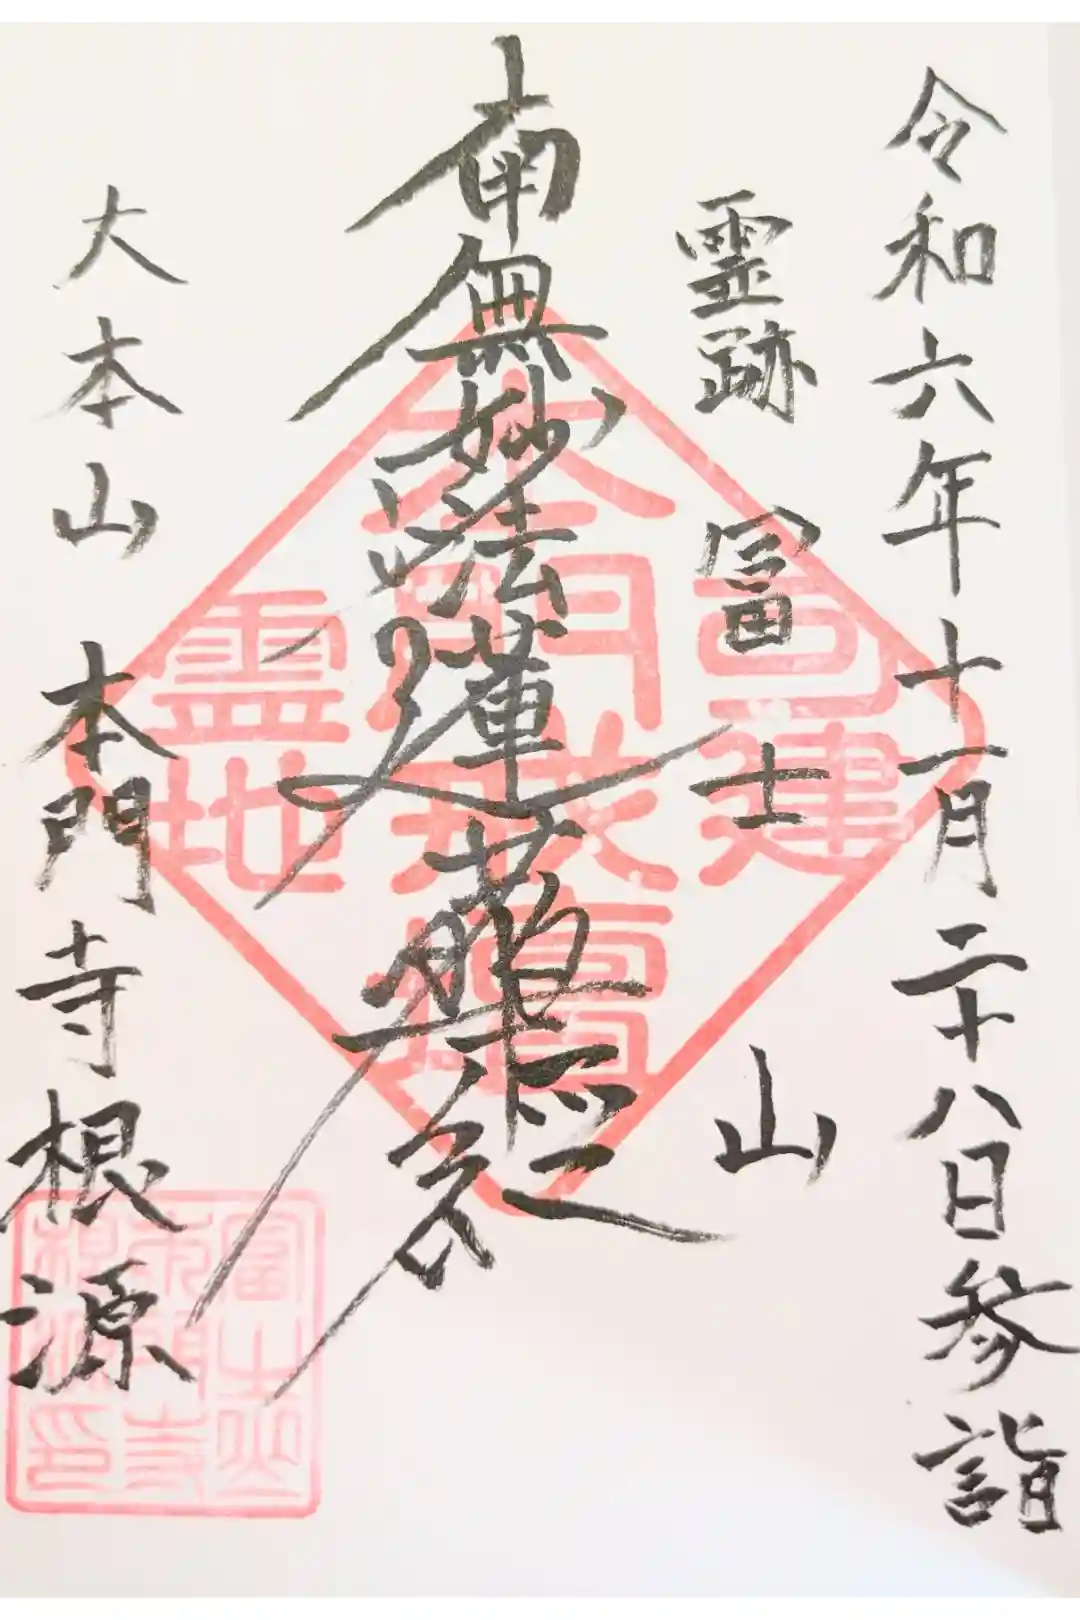 令和六年十一月二十八日参詣
霊跡 富士山
南無妙法蓮華経
大本山 本門寺根源
建
本門戒壇
霊地
富士山
本門寺
根源印